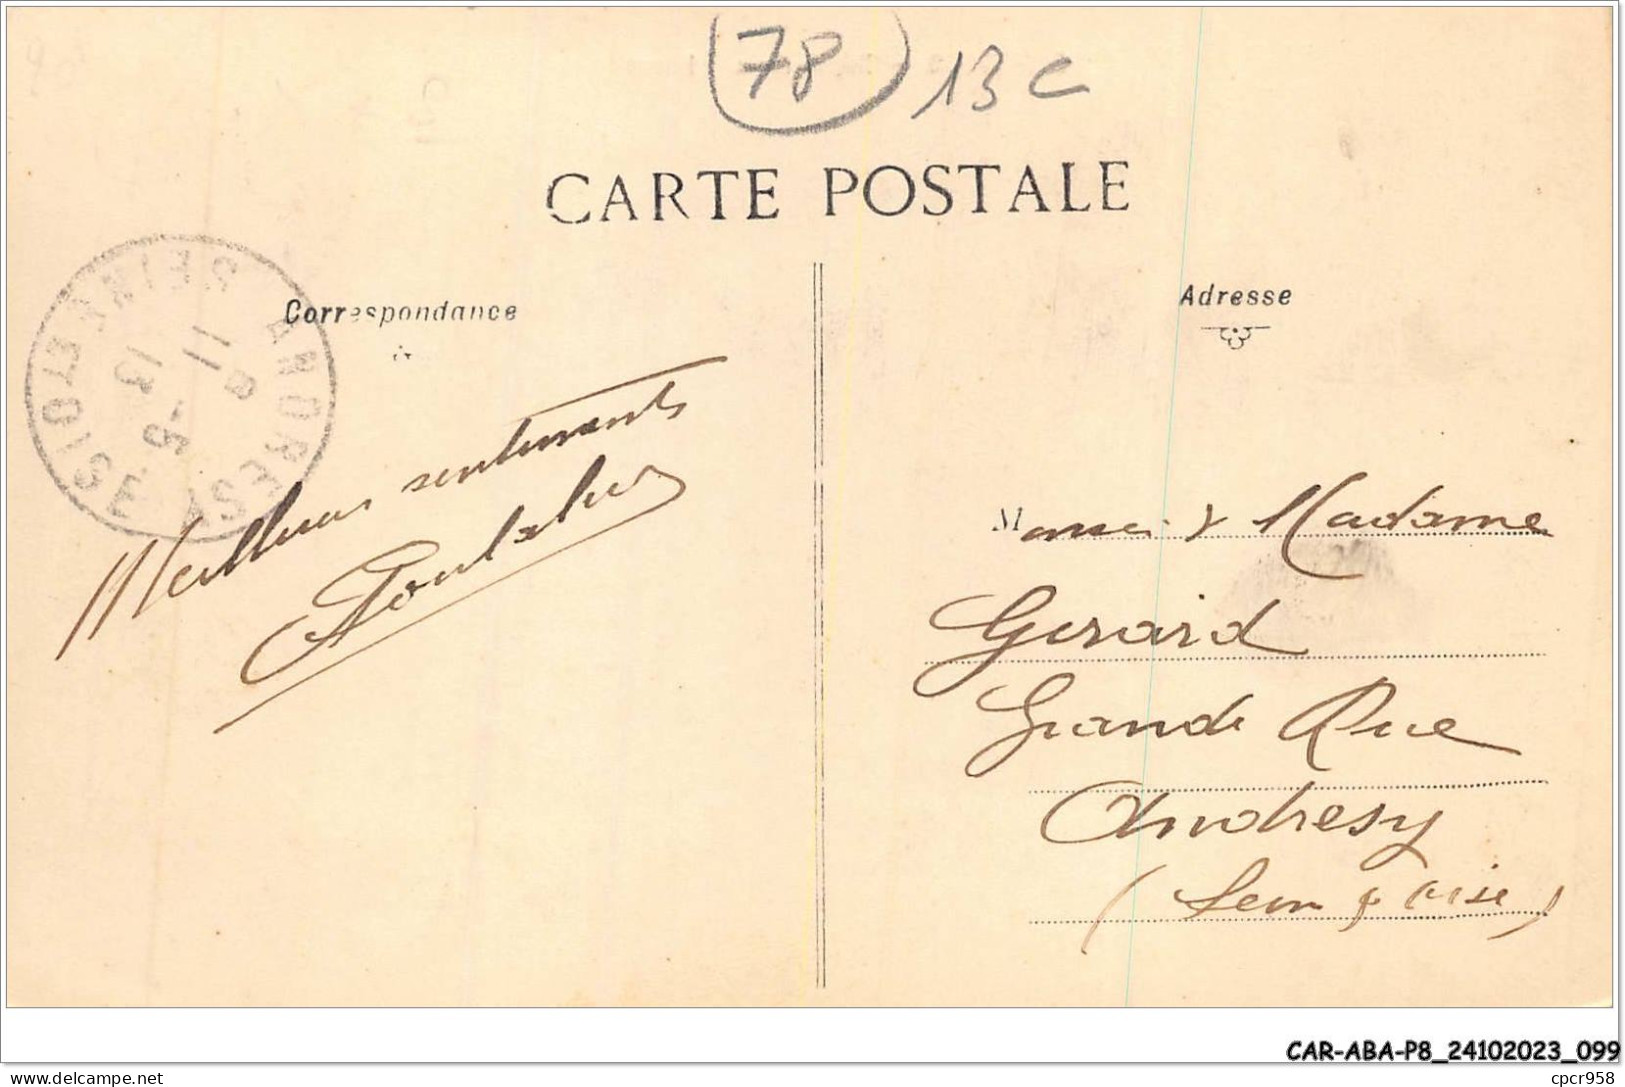 78 13 c
CARTE POSTALE
Correspondance
Adresse
ANDRESY
SEINE ET OISE
11
8 -5
13
Meilleurs sentiments
Monsieur & Madame
Gerard
Grande Rue
Andresy
(Seine & Oise)
CAR-ABA-P8_24102023_099
cpcr958